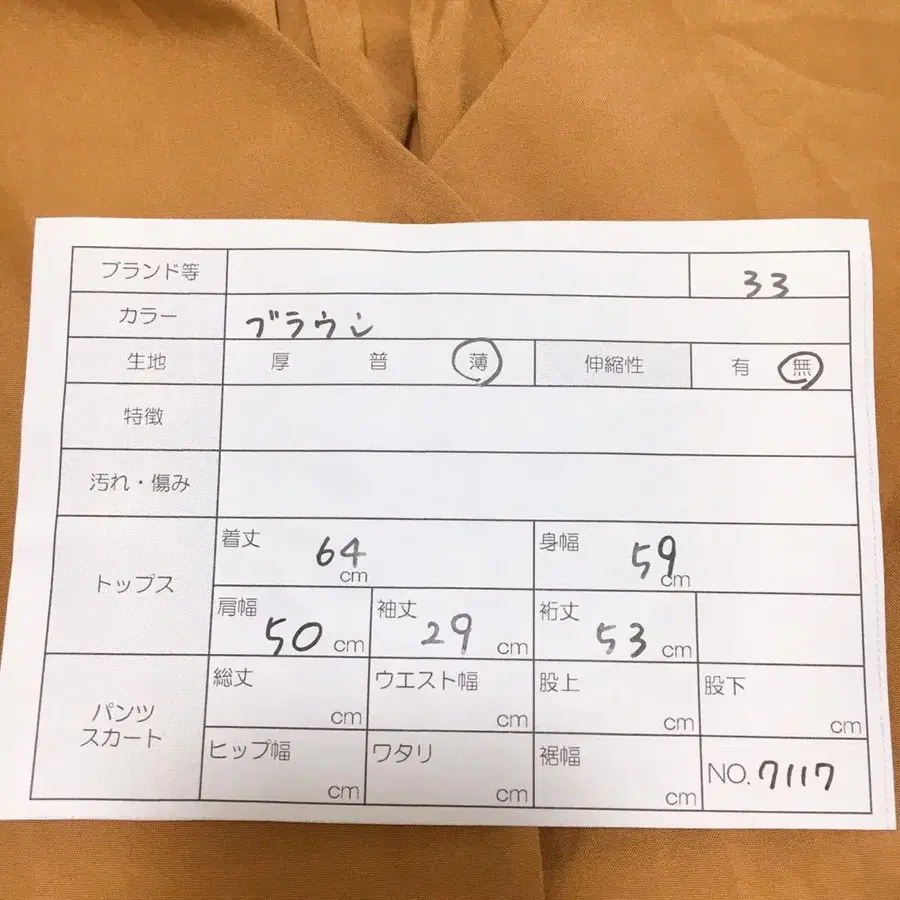 ブランド等 33
カラー ブラウン
生地 厚 普 薄 伸縮性 有 無
特徴
汚れ・傷み
トップス
着丈 64 cm 身幅 59 cm
肩幅 50 cm 袖丈 29 cm 裄丈 53 cm
パンツ
スカート
総丈 cm ウエスト幅 cm 股上 cm 股下 cm
ヒップ幅 cm ワタリ cm 裾幅 cm NO. 7117